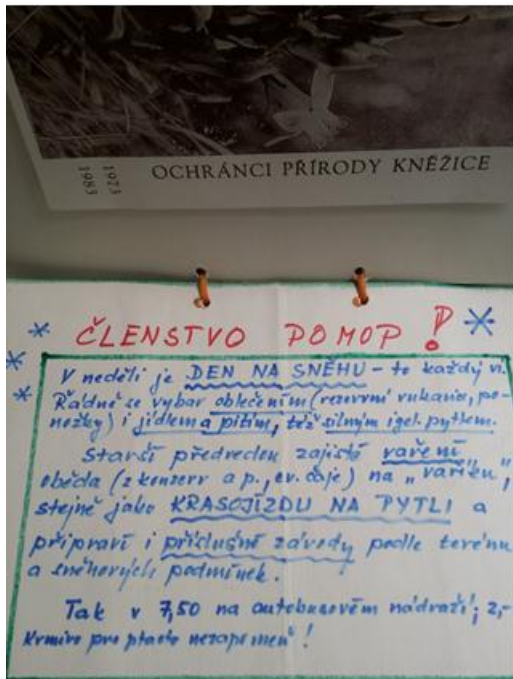 1973
1983
OCHRÁNCI PŘÍRODY KNĚŽICE
ČLENSTVO POMOP!
V neděli je DEN NA SNĚHU - to každý ví.
Řádně se vybav oblečením (rezervní rukavice, po-
nožky) i jídlem a pitím, též silným igel. pytlem.
Starší předveden zajistí vaření
oběda (z konzerv a p., ev. čaje) na "vařiku",
stejně jako KRASOJÍZDU NA PYTLI a
připraví i příslušné závody podle terénu
a sněhových podmínek.
Tak v 7,50 na autobusovém nádraží; 2,-
Krmivo pro ptactvo nezapomeň!